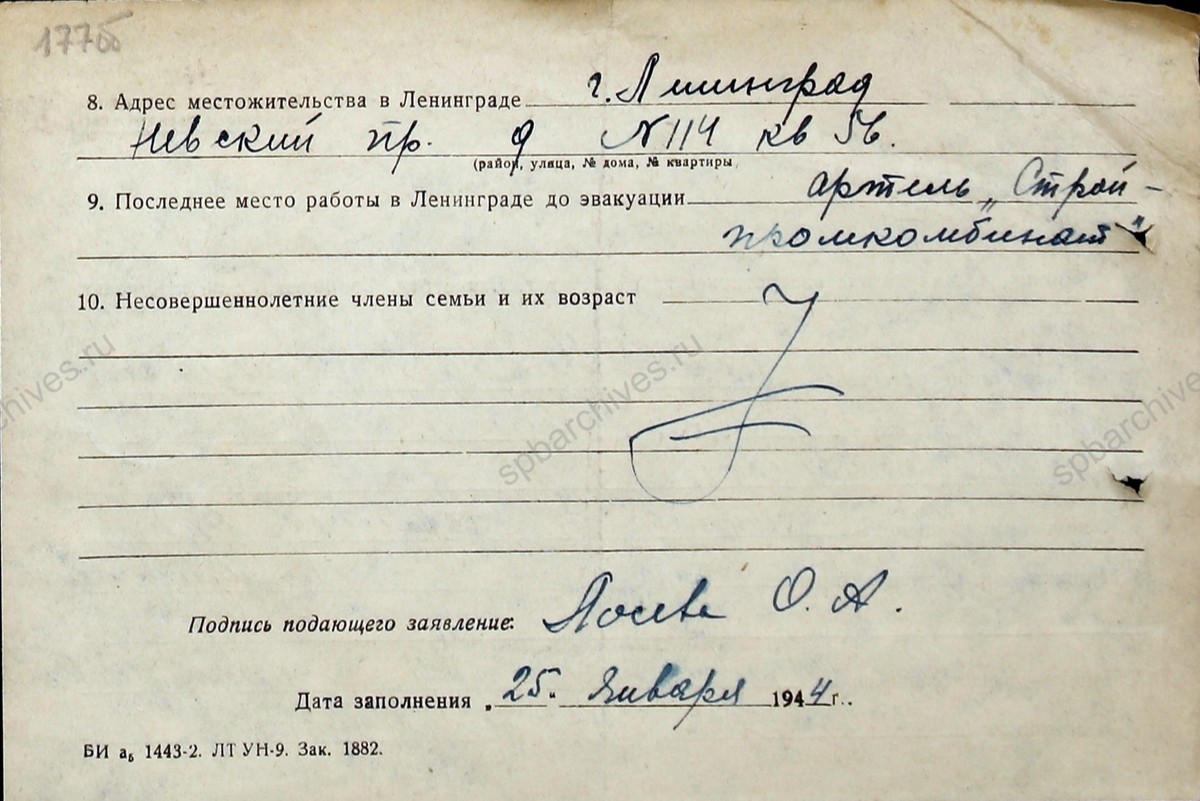 177об
8. Адрес местожительства в Ленинграде г. Ленинград
Невский пр. д №114 кв 56.
(район, улица, № дома, № квартиры)
9. Последнее место работы в Ленинграде до эвакуации артель „Строй-
промкомбинат"
10. Несовершеннолетние члены семьи и их возраст
spbarchives.ru
Подпись подающего заявление: О. А.
Дата заполнения „25" января 1944 г..
БИ аб 1443-2. ЛТ УН-9. Зак. 1882.